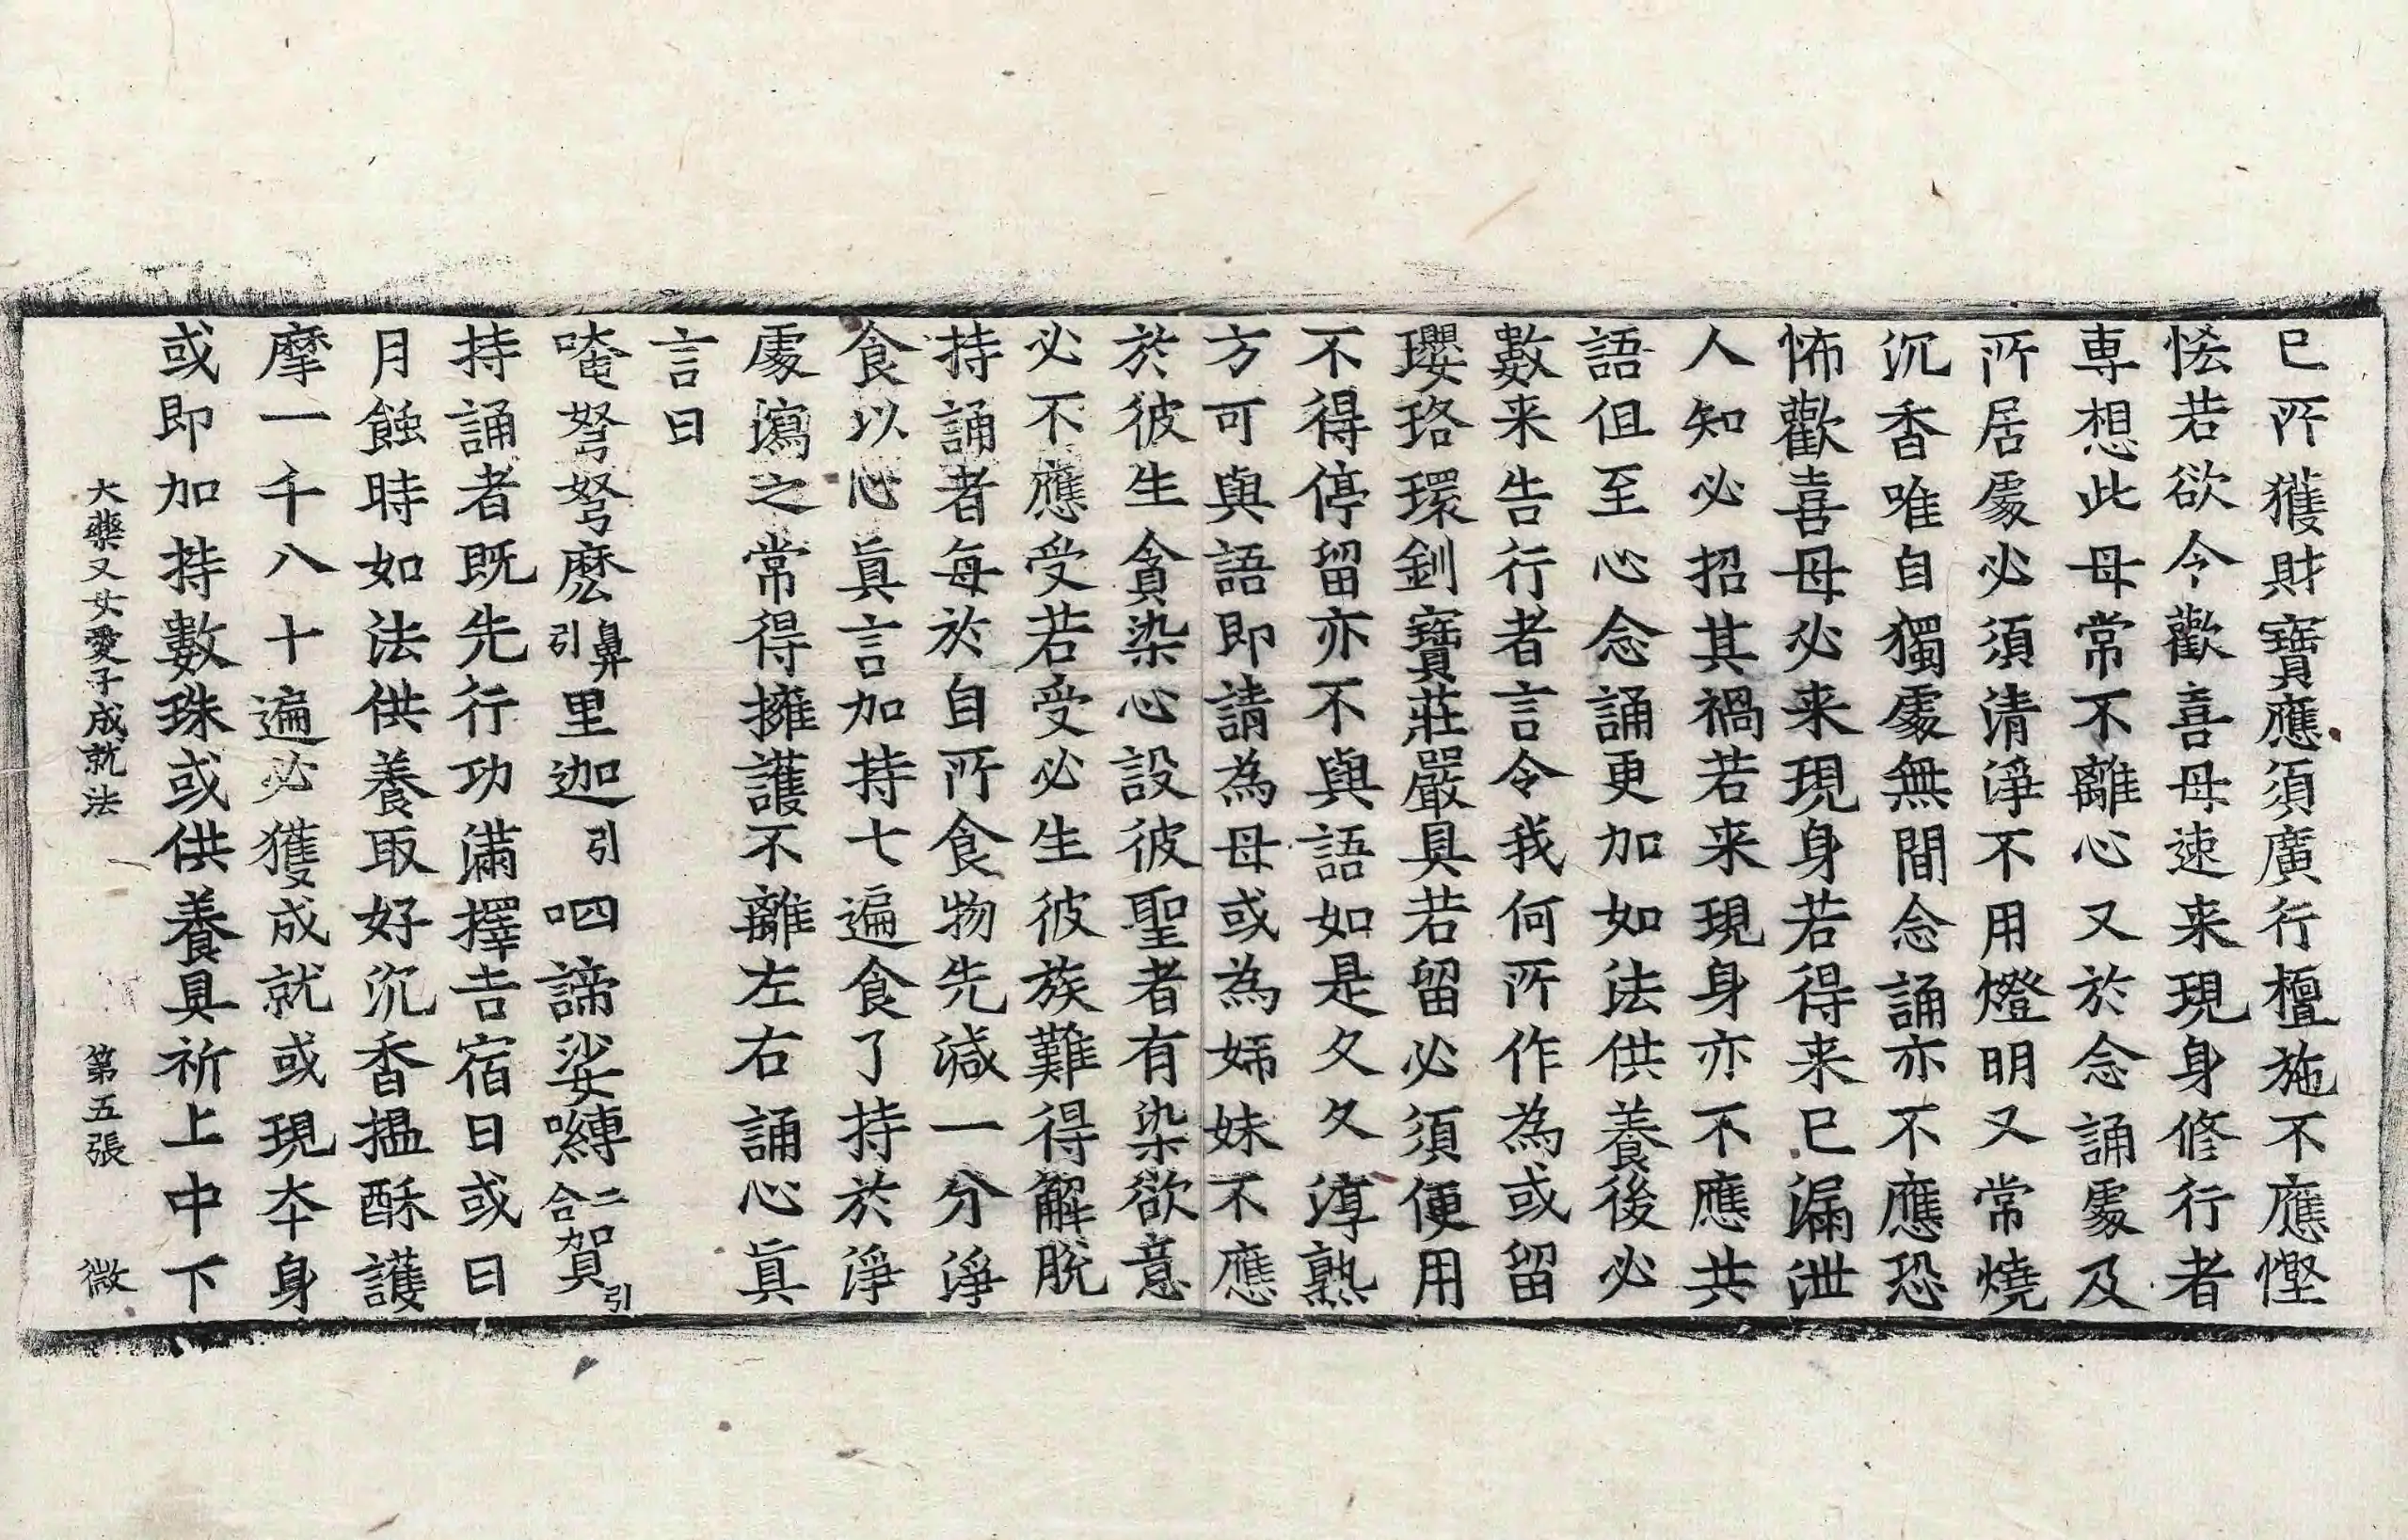 已所獲財寶應須廣行檀施不應慳
悋若欲令歡喜母速来現身修行者
専想此母常不離心又於念誦處及
所居處必須清淨不用燈明又常燒
沉香唯自獨處無間念誦亦不應恐
怖歡喜母必来現身若得来已漏泄
人知必招其禍若来現身亦不應共
語但至心念誦更加如法供養後必
數来告行者言令我何所作為或留
瓔珞環釧寶莊嚴具若留必須便用
不得停留亦不與語如是久久淳熟
方可與語即請為母或為姉妹不應
於彼生貪染心設彼聖者有染欲意
必不應受若受必生彼族難得解脫
持誦者每於自所食物先減一分淨
食以心真言加持七遍食了持於淨
處瀉之常得擁護不離左右誦心真
言曰
唵弩弩麽鼻引里迦引呬諦娑嚩二合賀引
持誦者既先行功滿擇吉宿日或日
月蝕時如法供養取好沉香揾酥護
摩一千八十遍必獲成就或現本身
或即加持數珠或供養具祈上中下
大藥叉女愛子成就法 第五張 微